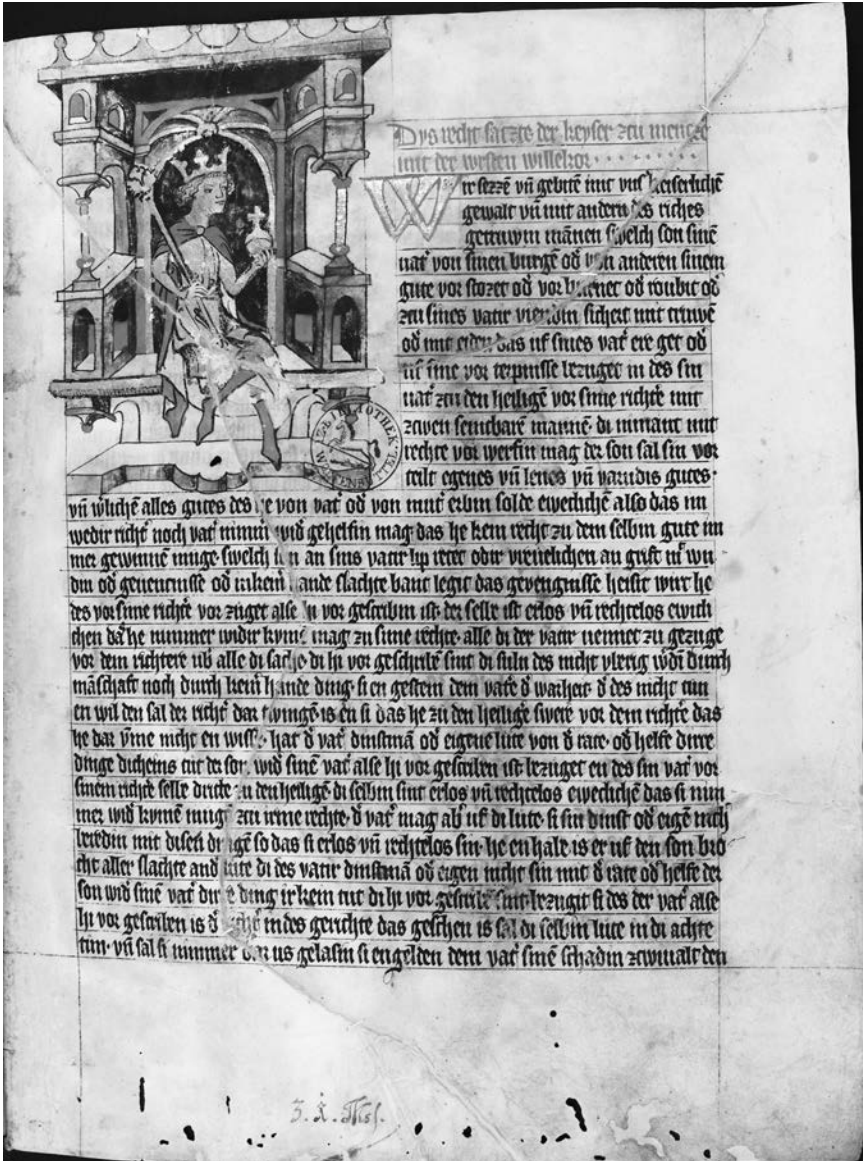 Dys recht satzte der keyser zcu mencze
mit der vorsten willekor
Wir seczzē vn̄ gebitē mit vnſ keiserlichē
gewalt vn̄ mit andern des riches
getruwin mānen swelch son sinē
vat' von sinen burgē od' von anderen sinem
gute vor stozet od' vor burnet od' roubit od'
zcu sines vatir vienden sichert mit truwē
od' mit eiden das uf sines vat' ere get od'
uf sine vor terpnisse bezuget in des sin
vat' zcu den heiligē vor sime richt'e mit
zcwen sembarē mannē di nimant mit
rechte vor werfin mag der son sal sin vor
teilt egenes vn̄ lenes vn̄ varndis gutes·
vn̄ alles gutes des he von vat' od' von mut' erbin solde eweclichē also das im
wedir richt' noch vat' nimm' wid' gehelfin mag das he kein recht zu dem selbin gute nū
mer gewinnē muge· swelch son an sins vatir lip retet odir vrevelichen an grift
od' gevencnisse od' in bant legit das gevengnisse heisit wirt he
des vor sime richt'e vor zuget alse hi vor gescribin ist· der selbe ist erlos vn̄ rechtelos ewich
chen das he nummer widir kumē mag zu sime rechte· alle di der vatir nennet zu gezuge
vor dem richtere ub' alle di sache· di hi vor geschribē sint di suln des nicht durch
māschaft noch durch kein' hande ding· si en gesten dem vat'e d' warheit· d' des nicht tun
en wil den sal der richt' dar twingē· is en si das he zu den heiligē swere vor dem richt'e das
he dar vmme nicht en wisse· hat d' vat' dinstmā od' eigene lute von d' rate· od' helfe dirre
dinge dicheins tut der son wid' sinē vat' alse hi vor gescriben ist· bezuget en des sin vat' vor
sinem richt'e selbe dritte zu den heiligē di selbin sint erlos vn̄ rechtelos eweclichē das si num
mer wid' kumen mugē zcu irme rechte· d' vat' mag ab' uf di lute· si sin dinst od' eigē nich
beredin mit disen dingē so das si erlos vn̄ rechtelos sin· he en habe is er uf den son bro
cht aller slachte and' lute di des vatir dinstmā od' eigen nicht sin mit d' rate od' helfe der
son wid' sinē vat' dirre ding irkein tut di hi vor gescribē sint· bezugit si des der vat' alse
hi vor gescriben is d' richt' in des gerichte das geschen is sal di selbin lute in di achte
tun· vn̄ sal si nimmer dar us gelasin si engelden dem vat' sinē schadin zcwivalt den
BIBLIOTHEK
3. 1. Mss.